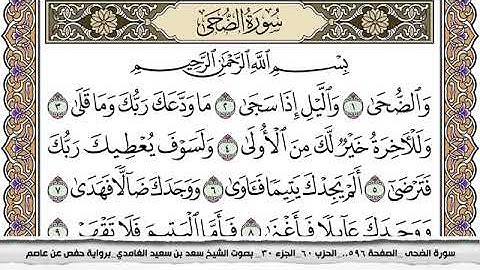 سُورَةُ الضُّحَى
بِسْمِ اللَّهِ الرَّحْمَٰنِ الرَّحِيمِ
وَالضُّحَىٰ ١ وَاللَّيْلِ إِذَا سَجَىٰ ٢ مَا وَدَّعَكَ رَبُّكَ وَمَا قَلَىٰ ٣
وَلَلْآخِرَةُ خَيْرٌ لَّكَ مِنَ الْأُولَىٰ ٤ وَلَسَوْفَ يُعْطِيكَ رَبُّكَ
فَتَرْضَىٰ ٥ أَلَمْ يَجِدْكَ يَتِيمًا فَآوَىٰ ٦ وَوَجَدَكَ ضَالًّا فَهَدَىٰ ٧
وَوَجَدَكَ عَائِلًا فَأَغْنَىٰ ٨ فَأَمَّا الْيَتِيمَ فَلَا تَقْهَرْ ٩
سورة الضحى _الصفحة ٥٩٦.. الحزب ٦٠_الجزء ٣٠_ بصوت الشيخ سعد بن سعيد الغامدي_برواية حفص عن عاصم